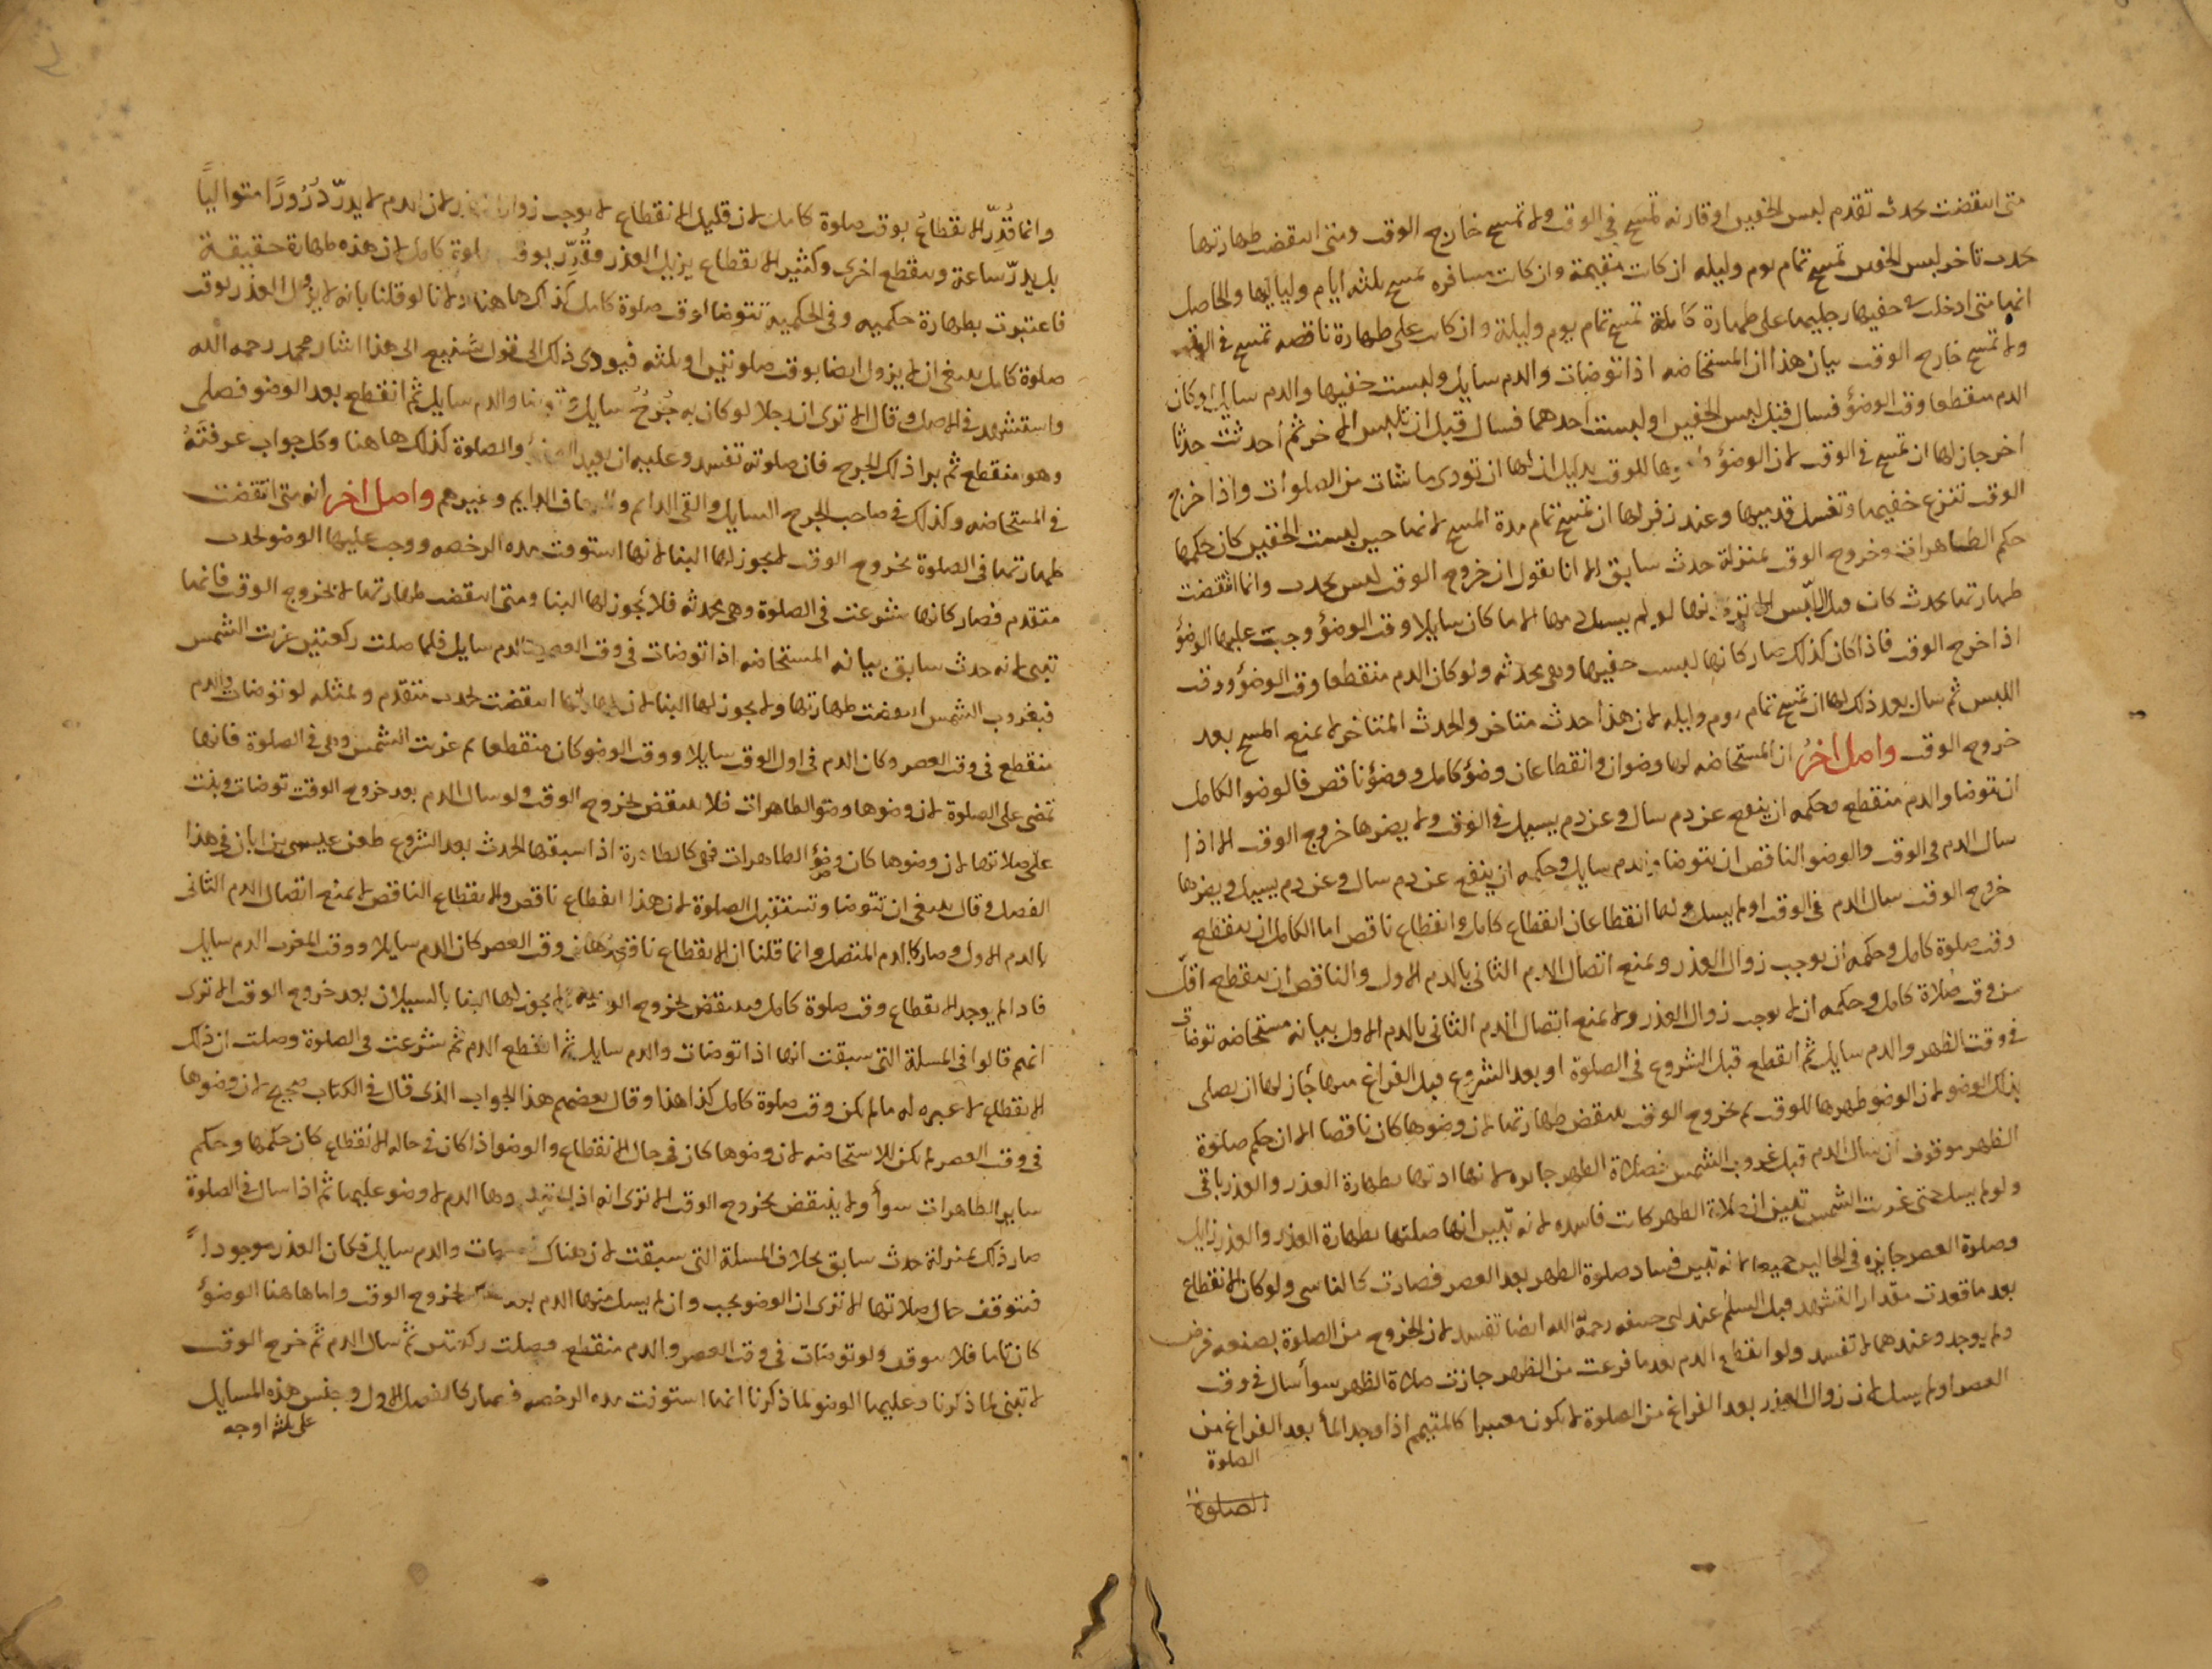 متى انتقضت بحدث تقدم لبس الخفين او قارنه تمسح في الوقت ولا تمسح خارج الوقت ومتى انتقضت طهارتها
بحدث تاخر لبس الخفين تمسح تمام يوم وليله ان كانت مقيمة وان كانت مسافره تمسح ثلثه ايام ولياليها والحاصل
انها متى ادخلت خفيها رجليها على طهارة كاملة تمسح تمام يوم وليلة وان كان على طهارة ناقصه تمسح في الوقت
ولا تمسح خارج الوقت بيان هذا ان المستحاضه اذا توضات والدم سايل ولبست خفيها والدم سايل او كان
الدم منقطعا وقت الوضوء فسال قبل لبس الخفين او لبست احدهما فسال قبل ان تلبس الاخر ثم احدثت حدثا
اخر جاز لها ان تمسح في الوقت لان الوضوء للوقت بدليل ان لها ان تودى ما شات من الصلوات واذا خرج
الوقت تنزع خفيها وتغسل قدميها وعند زفر لها ان تمسح تمام مدة المسح لانها حين لبست الخفين كان حكمها
حكم الطاهرات وخروج الوقت بمنزلة حدث سابق الا انا نقول ان خروج الوقت ليس بحدث وانما انتقضت
طهارتها بحدث كان قبل اللبس الا ترى انها لو لم يسل منها الا ما كان سايلا وقت الوضوء وجبت عليها الوضوء
اذا خرج الوقت فاذا كان كذلك صار كانها لبست خفيها وهى محدثه ولو كان الدم منقطعا وقت الوضوء ووقت
اللبس ثم سال بعد ذلك لها ان تمسح تمام يوم وليله لان هذا حدث متاخر والحدث المتاخر لا يمنع المسح بعد
خروج الوقت واصل اخر ان المستحاضه لها وضوان وانقطاعان وضوء كامل ووضوء ناقص فالوضو الكامل
ان تتوضا والدم منقطع وحكمه ان ينفع عن دم سال وعن دم يسيل في الوقت ولا يضرها خروج الوقت الا اذا
سال الدم في الوقت والوضو الناقص ان تتوضا والدم سايل وحكمه ان ينفع عن دم سال وعن دم يسيل ويضرها
خروج الوقت سال الدم في الوقت او لم يسل ولها انقطاعان انقطاع كامل وانقطاع ناقص اما الكامل ان ينقطع
وقت صلوة كامل وحكمه ان يوجب زوال العذر ويمنع اتصال الدم الثانى بالدم الاول والناقص ان ينقطع اقل
من وقت صلاة كامل وحكمه ان لا يوجب زوال العذر ولا يمنع اتصال الدم الثانى بالدم الاول بيانه مستحاضه توضات
في وقت الظهر والدم سايل ثم انقطع قبل الشروع في الصلوة او بعد الشروع قبل الفراغ منها جاز لها ان يصلى
بذلك الوضو لان الوضو طهرها للوقت ثم بخروج الوقت ينتقض طهارتها لان وضوها كان ناقصا الا ان حكم صلوة
الظهر موقوف ان سال الدم قبل غروب الشمس فصلاة الظهر جايره لانها ادتها بطهارة العذر والعذر باقى
ولو لم يسل حتى غربت الشمس تبين ان صلاة الظهر كانت فاسده لانه تبين انها صلتها بطهارة العذر والعذر زايل
وصلوة العصر جايزه في الحالين جميعا لانه تبين فساد صلوة الظهر بعد العصر فصارت كالناسى ولو كان الانقطاع
بعد ما قعدت مقدار التشهد قبل السلم عند ابى حنيفه رحمة الله ايضا تفسد لان الخروج من الصلوة بصنعه فرض
ولم يوجد وعندهما لا تفسد ولو انقطع الدم بعد ما فرغت من الظهر جازت صلاة الظهر سوأ سال في وقت
العصر او لم يسل لان زوال العذر بعد الفراغ من الصلوة لا يكون معتبرا كالمتيمم اذا وجد الماء بعد الفراغ من
الصلوة
الصلوة
وانما قُدِّرَ الانقطاعُ بوقت صلوة كامل لان قليل الانقطاع لا يوجب زوال العذر لان الدم لا يدرّ دُرُورًا متواليًا
بل يدرّ ساعة وينقطع اخرى وكثير الانقطاع يزيل العذر فقُدِّر بوقت صلوة كامل لان هذه طهارة حقيقة
فاعتبرت بطهارة حكميه وفي الحكمية تتوضا لوقت صلوة كامل كذلك هاهنا ولانا لو قلنا بانه لا يزول العذر بوقت
صلوة كامل ينبغى ان لا يزول ايضا بوقت صلوتين او ثلثه فيودى ذلك الى قول شنيع الى هذا اشار محمد رحمه الله
واستشهد في الاصل وقال الا ترى ان رجلا لو كان به جُرحٌ سايل وتوضا والدم سايل ثم انقطع بعد الوضو فصلى
وهو منقطع ثم برا ذلك الجرح فان صلوته تفسد وعليه ان يعيد الوضوء والصلوة كذلك هاهنا وكل جواب عرفته
في المستحاضه وكذلك في صاحب الجرح السايل والقى الدايم والرعاف الدايم وغيرهم واصل اخر انه متى انتقضت
طهارتها في الصلوة بخروج الوقت لا يجوز لها البنا لانها استوفت مده الرخصه ووجب عليها الوضو لحدث
متقدم فصار كانها شرعت في الصلوة وهى محدثه فلا يجوز لها البنا ومتى انتقضت طهارتها لا بخروج الوقت فانها
تبنى لانه حدث سابق بيانه المستحاضه اذا توضات في وقت العصر والدم سايل فلما صلت ركعتين غربت الشمس
فبغروب الشمس انتقضت طهارتها ولا يجوز لها البنا لان طهارتها انتقضت لحدث متقدم ولمثله لو توضات والدم
منقطع في وقت العصر وكان الدم في اول الوقت سايلا ووقت الوضو كان منقطعا ثم غربت الشمس وهى في الصلوة فانها
تمضى على الصلوة لان وضوها وضو الطاهرات فلا ينتقض لخروج الوقت ولو سال الدم بعد خروج الوقت توضات وبنت
على صلاتها لان وضوها كان وضوء الطاهرات فهى كالطاهرة اذا سبقها الحدث بعد الشروع طعن عيسى بن ابان في هذا
الفصل وقال ينبغى ان تتوضا وتستقبل الصلوة لان هذا انقطاع ناقص والانقطاع الناقص لا يمنع اتصال الدم الثانى
بالدم الاول وصار كالدم المتصل وانما قلنا ان الانقطاع ناقص لان في وقت العصر كان الدم سايلا ووقت المغرب الدم سايل
فاذا لم يوجد الانقطاع وقت صلوة كامل فينتقض لخروج الوقت فلا يجوز لها البنا بالسيلان بعد خروج الوقت الا ترى
انهم قالوا في المسلة التى سبقت انها اذا توضات والدم سايل ثم انقطع الدم ثم شرعت في الصلوة وصلت ان ذلك
الانقطاع لا عبره له ما لم يكن وقت صلوة كامل كذا هذا وقال بعضهم هذا الجواب الذى قال في الكتاب صحيح لان وضوها
في وقت العصر لم يكن للاستحاضه لان وضوها كان في حال الانقطاع والوضو اذا كان في حاله الانقطاع كان حكمها وحكم
ساير الطاهرات سوأ ولا ينتقض بخروج الوقت الا ترى انه اذا لم الدم لا وضو عليها ثم اذا سال في الصلوة
صار ذلك بمنزلة حدث سابق بخلاف المسلة التى سبقت لان هناك توضات والدم سايل فكان العذر موجودا
فتتوقف حال صلاتها الا ترى ان الوضو يجب وان لم يسل منها الدم بعد ذلك لخروج الوقت واما هاهنا الوضوء
كان تاما فلا يتوقف ولو توضات في وقت العصر والدم منقطع فصلت ركعتين ثم سال الدم ثم خرج الوقت
لا تبنى لما ذكرنا وعليها الوضو لما ذكرنا انها استوفت مده الرخصه فصار كالفصل الاول وجنس هذه المسايل
على ثلثه اوجه